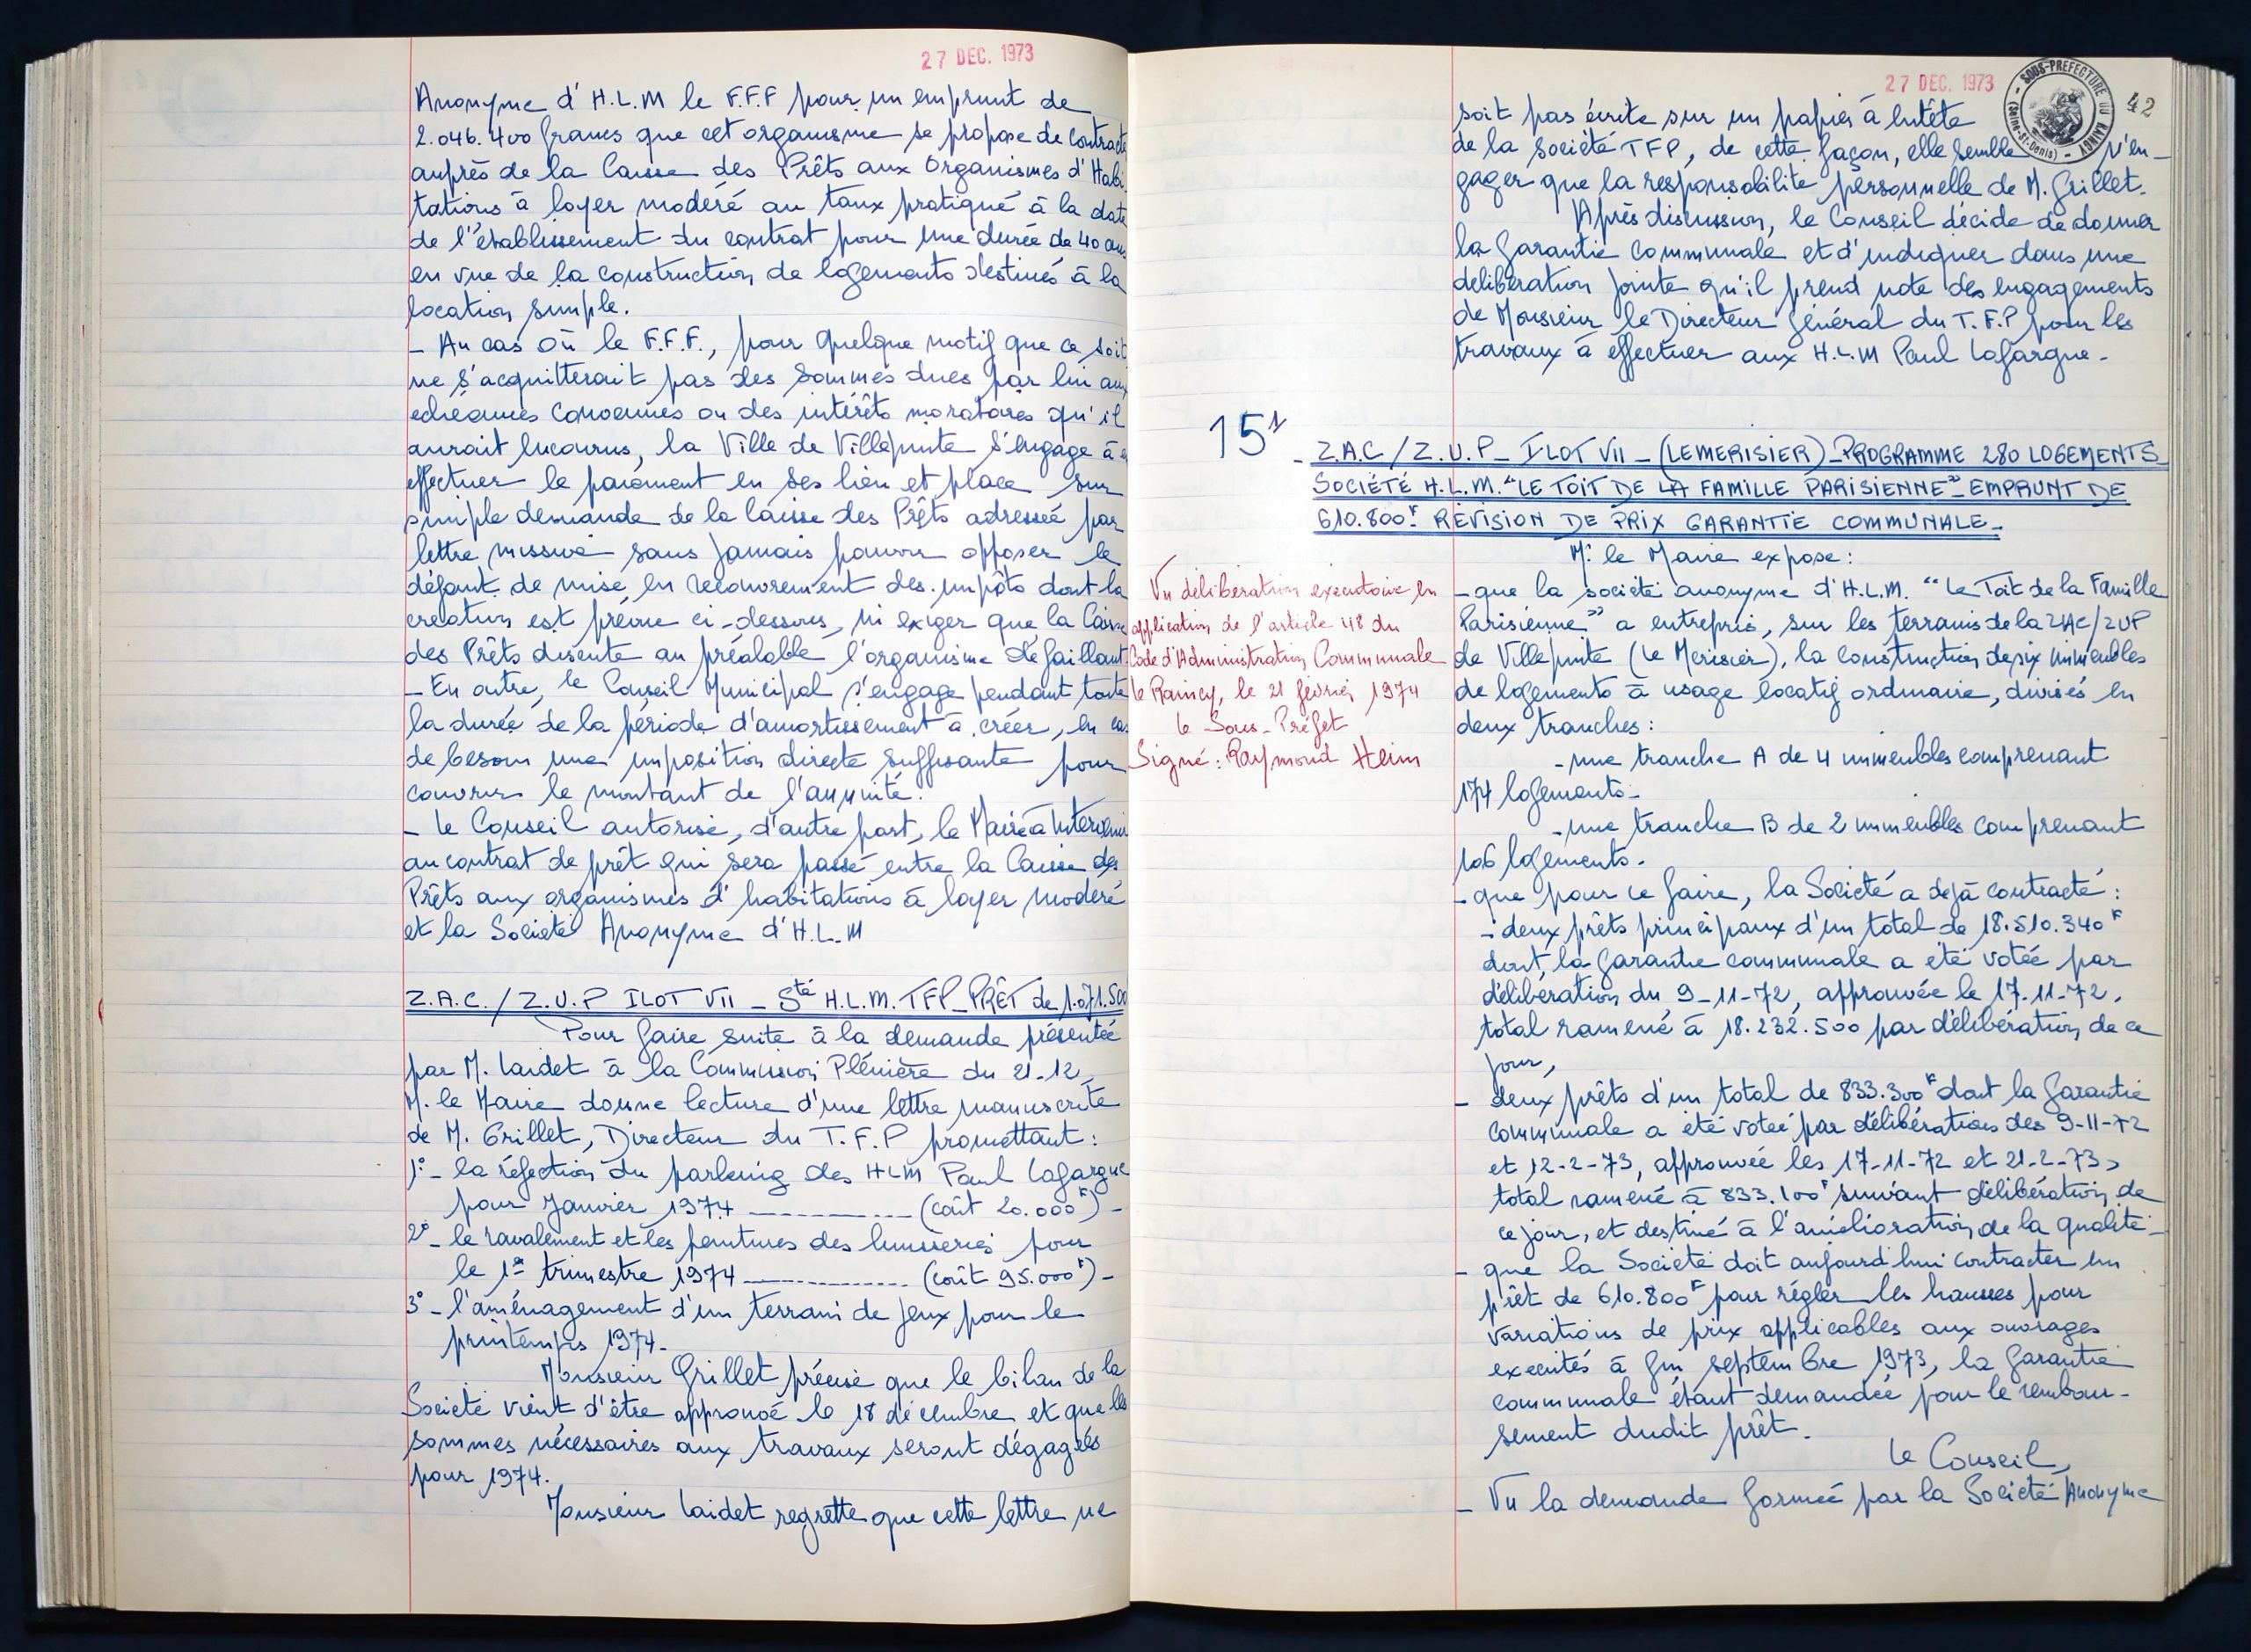 27 DEC. 1973
Anonyme d'H.L.M le F.F.F pour un emprunt de
2.046.400 francs que cet organisme se propose de contracte
auprès de la Caisse des Prêts aux Organismes d'Habi
tations à loyer modéré au taux pratiqué à la date
de l'établissement du contrat pour une durée de 40 ans
en vue de la construction de logements destinés à la
location simple.
- Au cas où le F.F.F., pour quelque motif que ce soit
ne s'acquitterait pas des sommes dues par lui aux
echéances convenues ou des intérêts moratoires qu'il
aurait encourus, la Ville de Villepinte s'engage à en
effectuer le paiement en ses lieu et place sur
simple demande de la Caisse des Prêts adressée par
lettre missive sans jamais pouvoir opposer le
défaut de mise en recouvrement des impôts dont la
création est prévue ci-dessous, ni exiger que la Caisse
des Prêts discute au préalable l'organisme défaillant
- En outre, le Conseil Municipal s'engage pendant toute
la durée de la période d'amortissement à créer, en cas
de besoin une imposition directe suffisante pour
couvrir le montant de l'annuité.
- Le Conseil autorise, d'autre part, le Maire à intervenir
au contrat de prêt qui sera passé entre la Caisse des
Prêts aux organismes d'habitations à loyer modéré
et la Société Anonyme d'H.L.M
Z.A.C./Z.U.P ILOT VII - Sté H.L.M. TFP - PRÊT de 1.071.500
Pour faire suite à la demande présentée
par M. Laidet à la Commission Plénière du 21-12
M. le Maire donne lecture d'une lettre manuscrite
de M. Grillet, Directeur du T.F.P promettant :
1°- la réfection du parking des HLM Paul Lafargue
pour Janvier 1974 ------------ (coût 20.000F) -
2°- le ravalement et les peintures des huisseries pour
le 1er trimestre 1974 ------------ (coût 95.000F) -
3°- l'aménagement d'un terrain de jeux pour le
printemps 1974-
Monsieur Grillet précise que le bilan de la
Société vient d'être approuvé le 18 décembre et que les
sommes nécessaires aux travaux seront dégagées
pour 1974.
Monsieur Laidet regrette que cette lettre ne
27 DEC. 1973
SOUS-PREFECTURE DU RAINCY
(Seine-St-Denis)
42
soit pas écrite sur un papier à entête
de la société TFP, de cette façon, elle semble n'en-
gager que la responsabilité personnelle de M. Grillet.
Après discussion, le Conseil décide de donner
la garantie communale et d'indiquer dans une
délibération jointe qu'il prend note des engagements
de Monsieur le Directeur Général du T.F.P pour les
travaux à effectuer aux H.L.M Paul Lafargue.
15
- Z.A.C/Z.U.P - ILOT VII - (LE MERISIER) - PROGRAMME 280 LOGEMENTS
SOCIÉTÉ H.L.M. "LE TOIT DE LA FAMILLE PARISIENNE" - EMPRUNT DE
610.800F. RÉVISION DE PRIX GARANTIE COMMUNALE -
M. le Maire expose :
- que la société anonyme d'H.L.M. "Le Toit de la Famille
Parisienne" a entrepris, sur les terrains de la ZAC/ZUP
de Villepinte (Le Merisier), la construction de six immeubles
de logements à usage locatif ordinaire, divisés en
deux tranches :
- une tranche A de 4 immeubles comprenant
174 logements-
- une tranche B de 2 immeubles comprenant
106 logements.
- que pour ce faire, la Société a déjà contracté :
- deux prêts principaux d'un total de 18.510.340F
dont la garantie communale a été votée par
délibération du 9-11-72, approuvée le 17.11-72,
total ramené à 18.232.500 par délibération de ce
jour,
- deux prêts d'un total de 833.300F dont la garantie
communale a été votée par délibérations des 9-11-72
et 12-2-73, approuvée les 17-11-72 et 21-2-73,
total ramené à 833.100F suivant délibération de
ce jour, et destiné à l'amélioration de la qualité-
- que la Société doit aujourd'hui contracter un
prêt de 610.800F pour régler les hausses pour
variations de prix applicables aux ouvrages
executés à fin septembre 1973, la garantie
communale étant demandée pour le rembour-
sement dudit prêt.
Le Conseil,
- Vu la demande formée par la Société Anonyme
Vu délibération executoire en
application de l'article 48 du
Code d'Administration Communale
le Raincy, le 21 février 1974
le Sous-Préfet
Signé : Raymond Heim